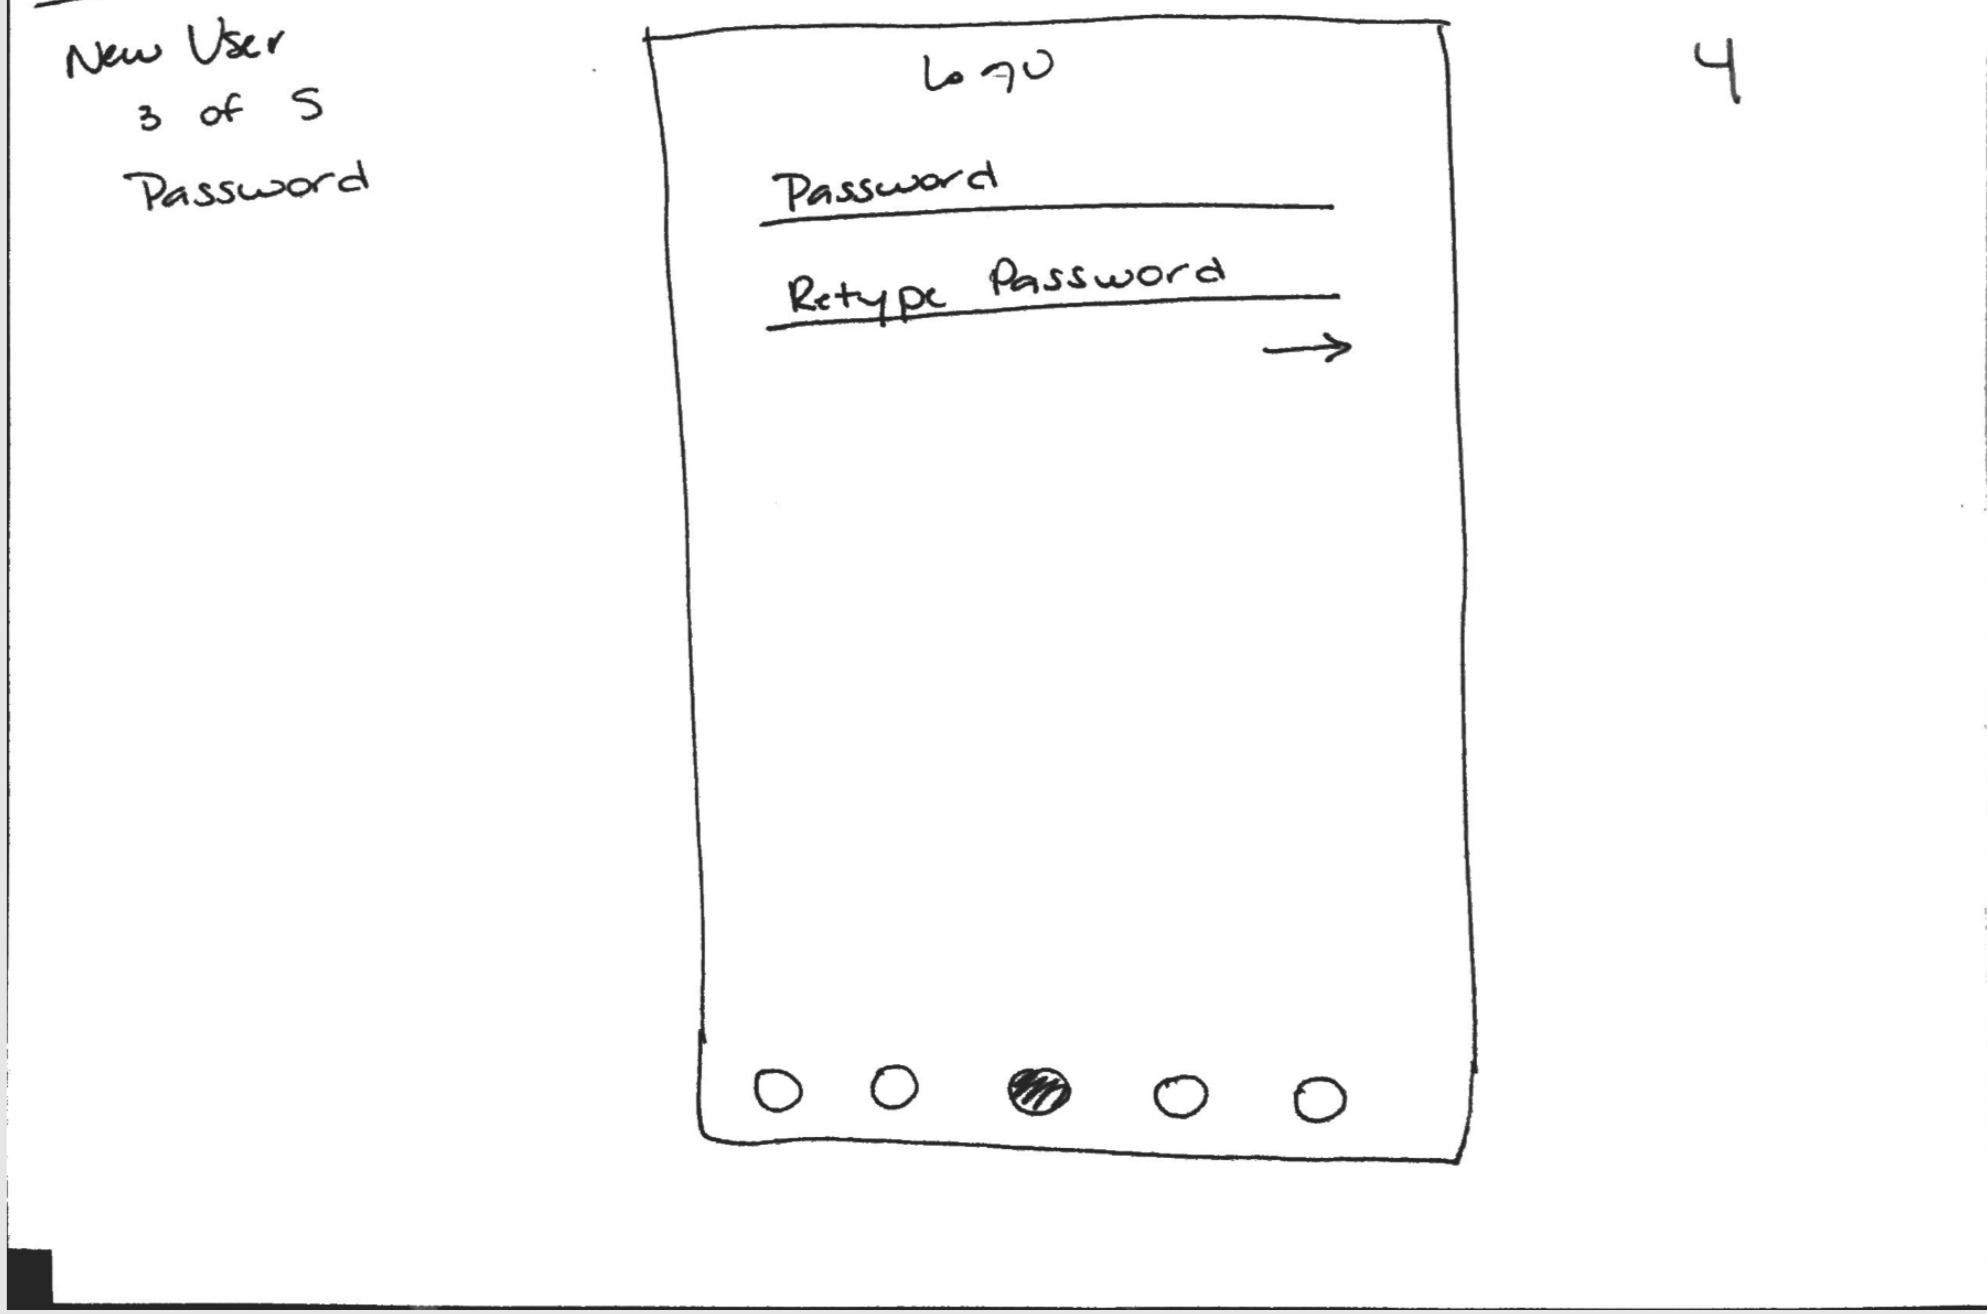 New User
3 of 5
Password
Logo
Password
Retype Password
4